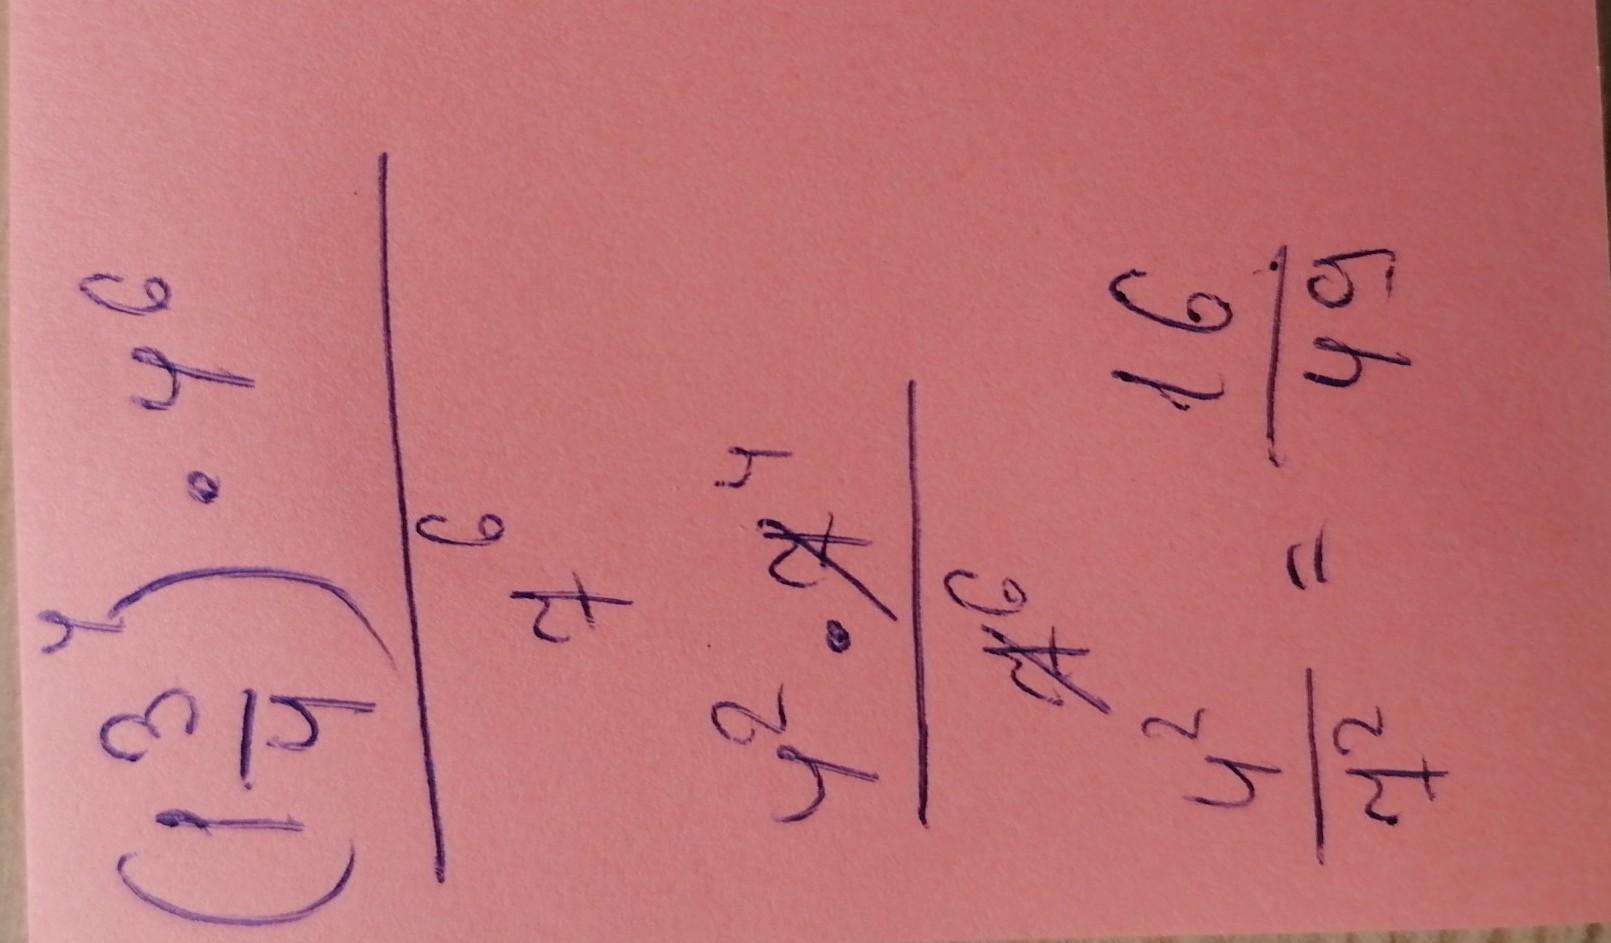 (1 3/4)^4 · 4^6
7^6
4^2 · 7^4
7^6
4^2/7^2 = 16/49